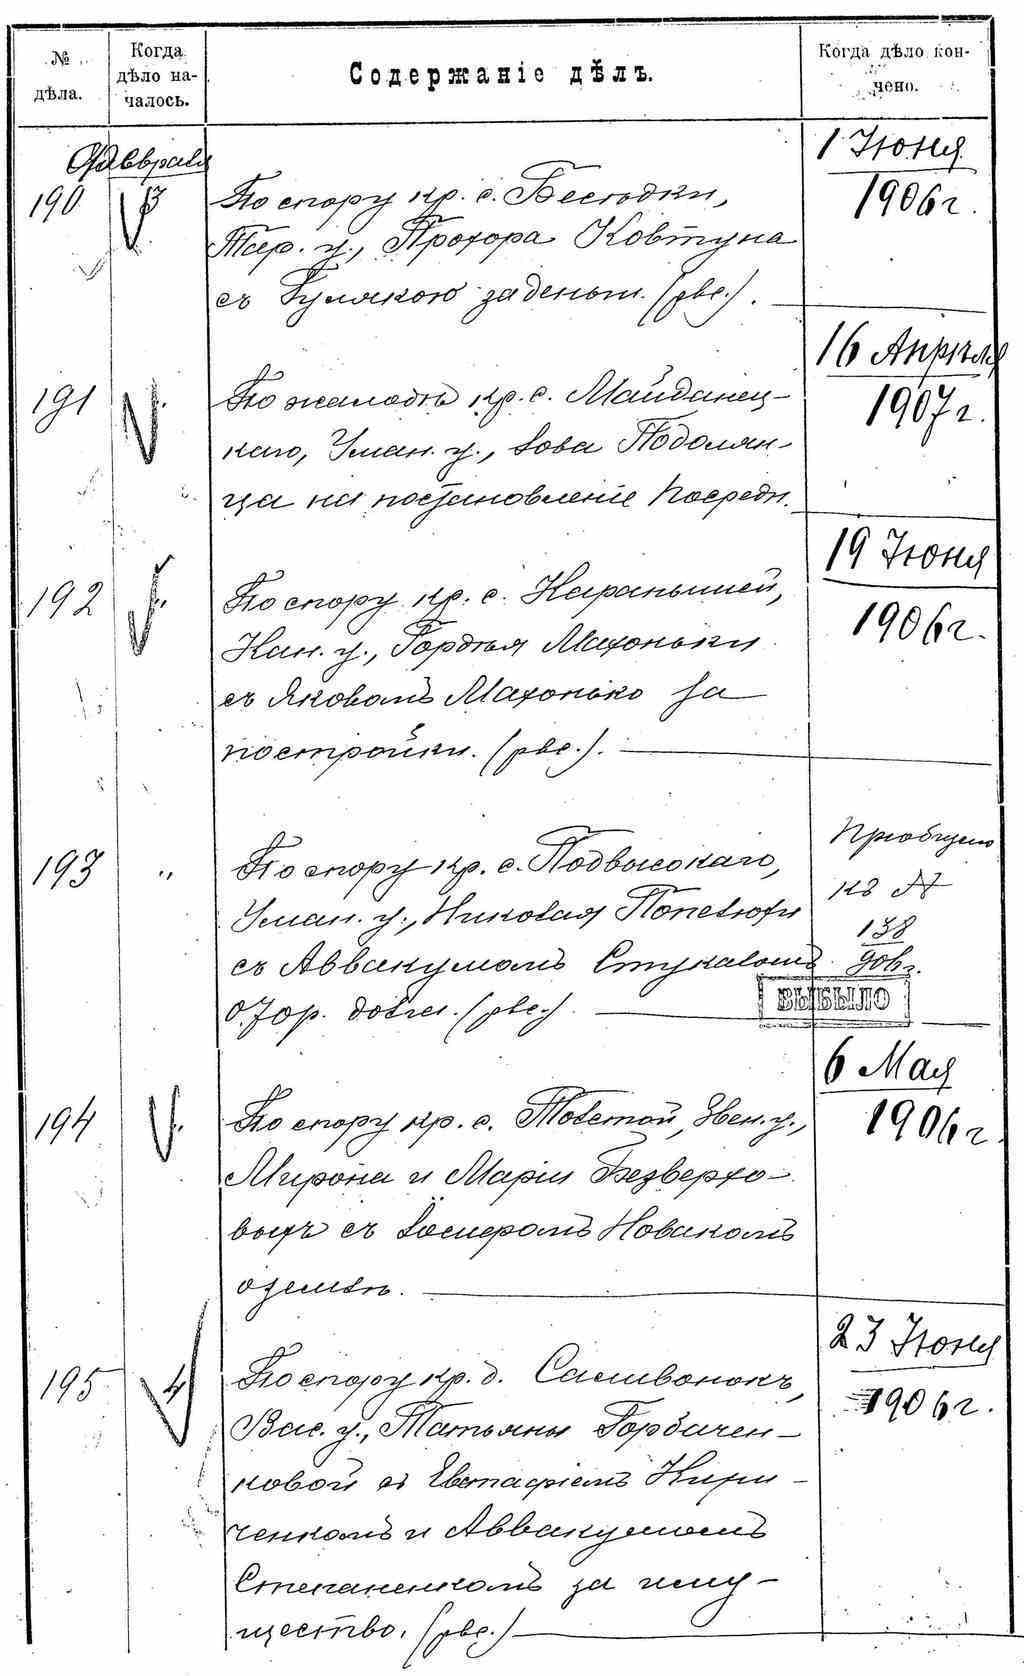 № дѣла.
Когда дѣло началось.
Содержаніе дѣлъ.
Когда дѣло кончено.
Февраля
190
3
По спору кр. с. Бесѣдки,
Тар. у., Прохора Ковтуна
съ Гулякою за деньги. (рвс.).
1 Іюня
1906 г.
191
По жалобѣ кр. с. Майданец-
каго, Уман. у., Іова Подолян-
ца на постановленіе Посредн.
16 Апрѣля
1907 г.
192
По спору кр. с. Карапышей,
Кан. у., Гордѣя Махоньки
съ Яковомъ Махонько за
постройки. (рвс.).
19 Іюня
1906 г.
193
"
По спору кр. с. Подвысокаго,
Уман. у., Николая Попелюхи
съ Аввакумомъ Стукаломъ
о 7 ор. долга. (рвс.)
Пріобщено
къ №
138
906 г.
ВЫБЫЛО
194
По спору кр. с. Толстой, Звен. у.,
Мирона и Маріи Безверхо-
выхъ съ Іосифомъ Новакомъ
о землѣ.
6 Мая
1906 г.
195
4
По спору кр. д. Саливонокъ,
Вас. у., Татьяны Горбачен-
ковой съ Евстафіемъ Кири-
ченкомъ и Аввакумомъ
Степаненкомъ за иму-
щество. (рвс.)
23 Іюня
1906 г.